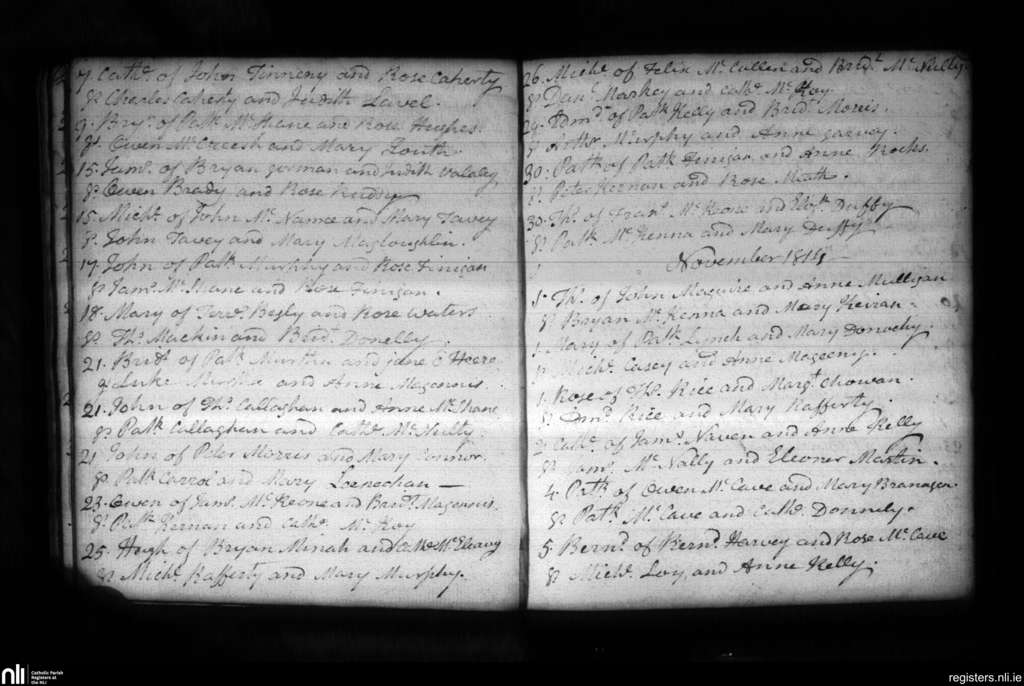 7. Cathe. of John Finneny and Rose Caherty
Sp. Charles Caherty and Judith Lavel.
9. Bryn. of Patk. Mc. Shane and Rose Hughes.
Sp. Owen Mc. Creesh and Mary Louth.
15. Jams. of Bryan german and Judith
Sp. Owen Brady and Rose
15. Michl. of John Mc. Namee and Mary Tavey
Sp. John Tavey and Mary Magloughlin.
17. John of Patk. Murphy and Rose Finigan
Sp. Jams. Mc. Shane and Rose Finigan.
18. Mary of Terce. Begly and Rose Waters
Sp. Ths. Mackin and Bridt. Donelly.
21. Bridt. of Patk. Murtha and jane
Sp. Luke Murtha and Anne Magennis.
21. John of Ths. Callaghan and Anne Mc. Shane
Sp. Patk. Callaghan and Cathe. Mc. Nulty.
21. John of Peter Morris and Mary Connor.
Sp. Patk. Carrol and Mary
23. Owen of Jams. Mc. Keone and Bridt. Magennis.
Sp. Patk. Kernan and Cathe. Mc. Koy
25. Hugh of Bryan Minah and Cathe. Mc. Eleavy
Sp. Michl. Rafferty and Mary Murphy.
26. Michl. of Felix Mc. Cullen and Bridt. Mc. Nulty.
Sp. Danl. Markey and Cathe. Mc. Koy.
Edmd. of Patk. Kelly and Bridt. Morris.
Arthr. Murphy and Anne garvey.
30. Patk. of Patk. Finigan and Anne Rocks.
Sp. Peter Kernan and Rose Math.
30. Ths. of Frans. Mc. Keone and Elizth. Duffy
Sp. Patk. Mc. Kenna and Mary Duffy
November 1814
1. Ths. of John Maguire and Anne Mulligan
Sp. Bryan Mc. Kenna and Mary Kevran.
1. Mary of Patk. Lynch and Mary Donnely
Sp. Michl. Casey and Anne Mageeny.
1. Rose of Ths. Rice and Margt. Chowan.
Sp. Edmd. Rice and Mary Rafferty.
2. Cathe. of Jams. Naven and Anne Kelly
Sp. Jams. Mc. Nally and Eleoner Martin.
4. Patk. of Owen Mc. Cave and Mary Branagan.
Sp. Patk. Mc. Cave and Cathe. Donnely.
5. Bernd. of Bernd. Harvey and Rose Mc. Cave
Sp. Michl. Loy and Anne Kelly.
nli Catholic Parish
Registers at
the NLI
registers.nli.ie